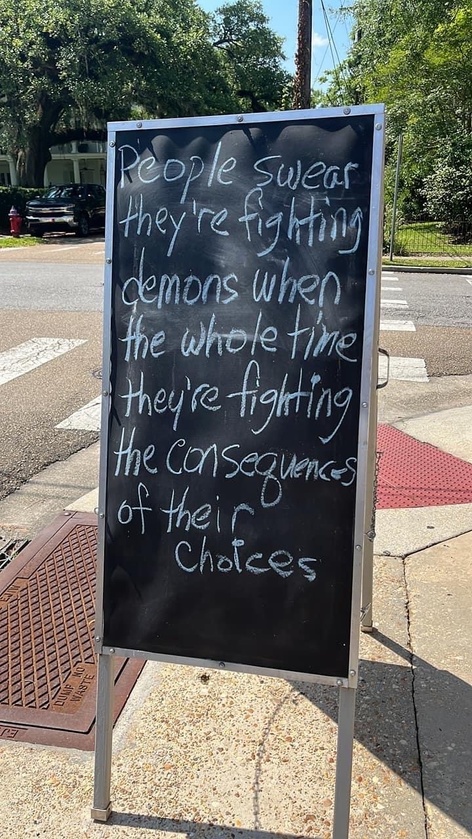 People swear
they're fighting
demons when
the whole time
they're fighting
the consequences
of their
choices
DUMP NO
WASTE